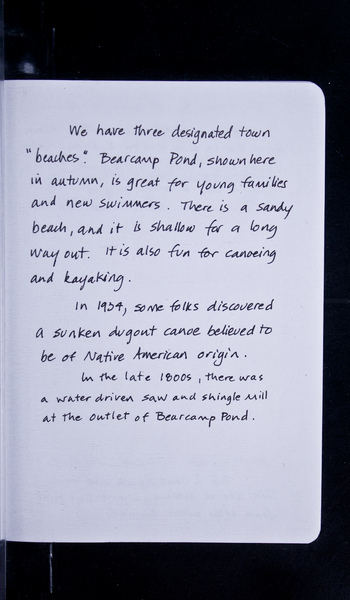 We have three designated town
"beaches". Bearcamp Pond, shown here
in autumn, is great for young families
and new swimmers. There is a sandy
beach, and it is shallow for a long
way out. It is also fun for canoeing
and kayaking.
In 1934, some folks discovered
a sunken dugout canoe believed to
be of Native American origin.
In the late 1800s, there was
a water driven saw and shingle mill
at the outlet of Bearcamp Pond.